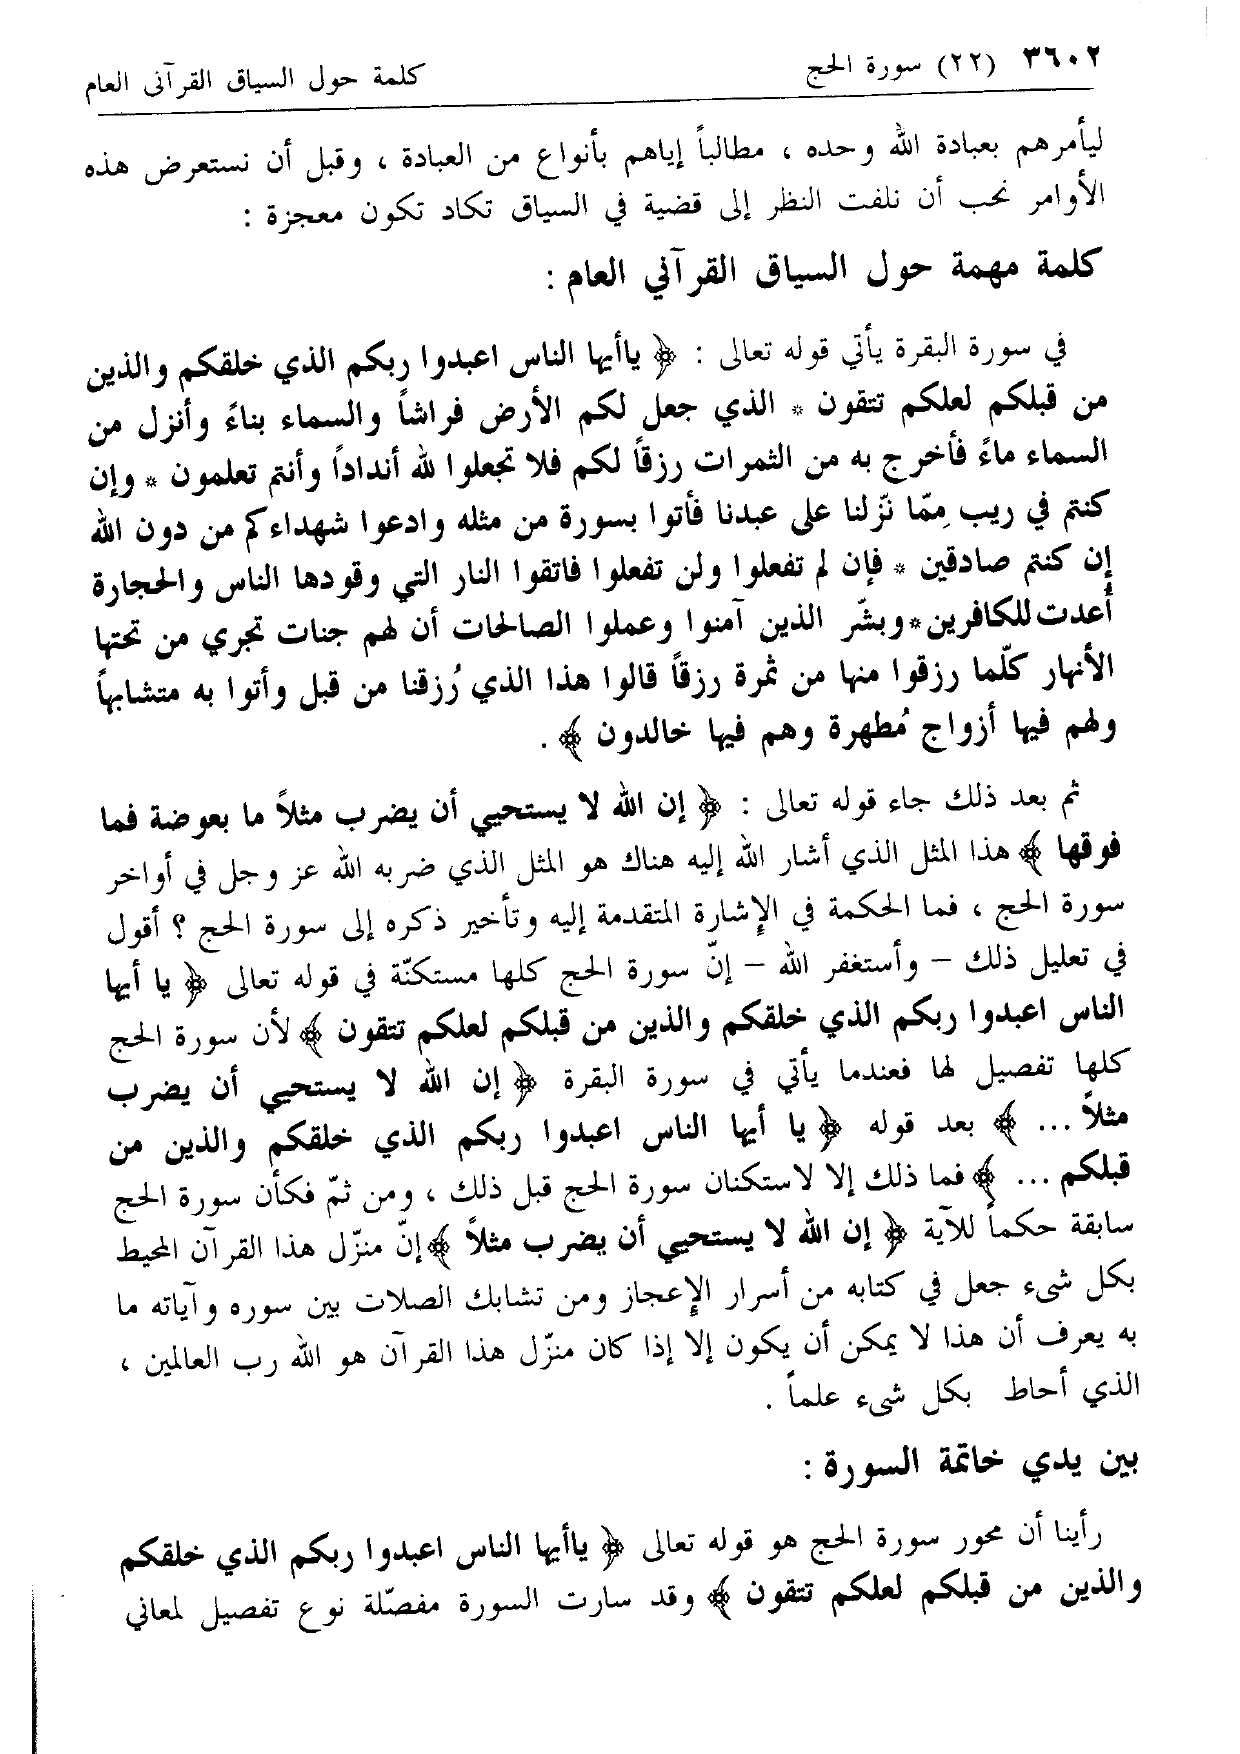 ٣٦٠٢ (٢٢) سورة الحج كلمة حول السياق القرآنى العام
ليأمرهم بعبادة الله وحده ، مطالباً إياهم بأنواع من العبادة ، وقبل أن نستعرض هذه
الأوامر نحب أن نلفت النظر إلى قضية في السياق تكاد تكون معجزة :
كلمة مهمة حول السياق القرآني العام :
في سورة البقرة يأتي قوله تعالى : ﴿ ياأيها الناس اعبدوا ربكم الذي خلقكم والذين
من قبلكم لعلكم تتقون * الذي جعل لكم الأرض فراشاً والسماء بناءً وأنزل من
السماء ماءً فأخرج به من الثمرات رزقاً لكم فلا تجعلوا لله أنداداً وأنتم تعلمون * وإن
كنتم في ريب مِمّا نزّلنا على عبدنا فأتوا بسورة من مثله وادعوا شهداءكم من دون الله
إن كنتم صادقين * فإن لم تفعلوا ولن تفعلوا فاتقوا النار التي وقودها الناس والحجارة
أُعدت للكافرين * وبشّر الذين آمنوا وعملوا الصالحات أن لهم جنات تجري من تحتها
الأنهار كلّما رزقوا منها من ثمرة رزقاً قالوا هذا الذي رُزقنا من قبل وأتوا به متشابهاً
ولهم فيها أزواج مُطهرة وهم فيها خالدون ﴾ .
ثم بعد ذلك جاء قوله تعالى : ﴿ إن الله لا يستحيي أن يضرب مثلاً ما بعوضة فما
فوقها ﴾ هذا المثل الذي أشار الله إليه هناك هو المثل الذي ضربه الله عز وجل في أواخر
سورة الحج ، فما الحكمة في الإشارة المتقدمة إليه وتأخير ذكره إلى سورة الحج ؟ أقول
في تعليل ذلك – وأستغفر الله – إنّ سورة الحج كلها مستكنّة في قوله تعالى ﴿ يا أيها
الناس اعبدوا ربكم الذي خلقكم والذين من قبلكم لعلكم تتقون ﴾ لأن سورة الحج
كلها تفصيل لها فعندما يأتي في سورة البقرة ﴿ إن الله لا يستحيي أن يضرب
مثلاً ... ﴾ بعد قوله ﴿ يا أيها الناس اعبدوا ربكم الذي خلقكم والذين من
قبلكم ... ﴾ فما ذلك إلا لاستكنان سورة الحج قبل ذلك ، ومن ثمّ فكأن سورة الحج
سابقة حكماً للآية ﴿ إن الله لا يستحيي أن يضرب مثلاً ﴾ إنّ منزّل هذا القرآن المحيط
بكل شيء جعل في كتابه من أسرار الإعجاز ومن تشابك الصلات بين سوره وآياته ما
به يعرف أن هذا لا يمكن أن يكون إلا إذا كان منزّل هذا القرآن هو الله رب العالمين ،
الذي أحاط بكل شيء علماً .
بين يدي خاتمة السورة :
رأينا أن محور سورة الحج هو قوله تعالى ﴿ ياأيها الناس اعبدوا ربكم الذي خلقكم
والذين من قبلكم لعلكم تتقون ﴾ وقد سارت السورة مفصّلة نوع تفصيل لمعاني